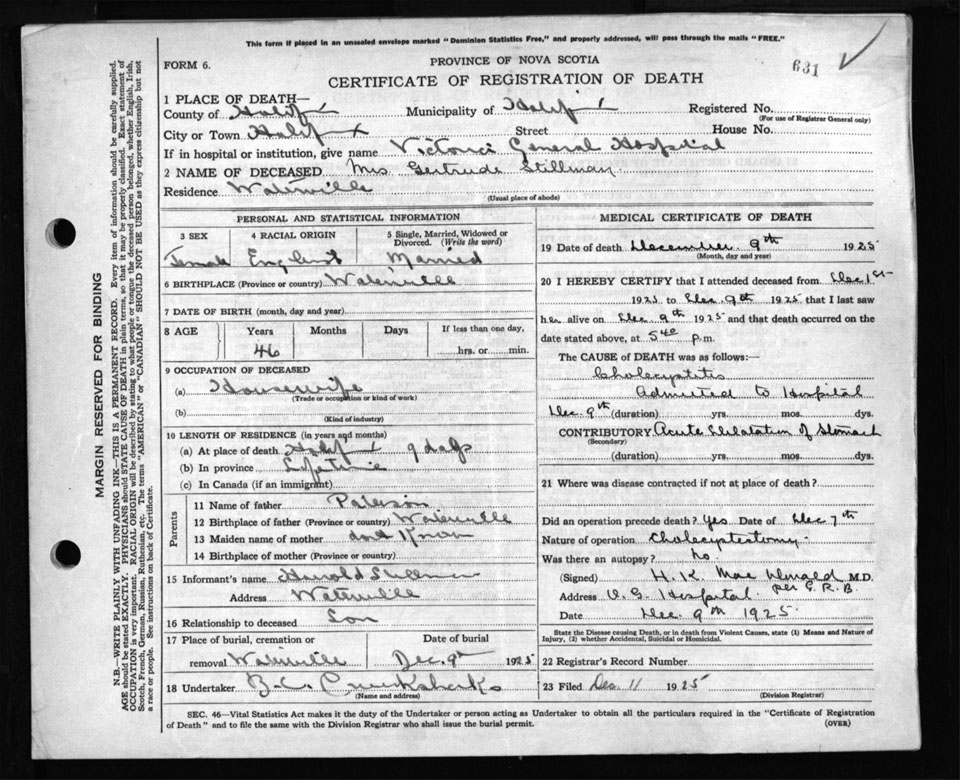 This form if placed in an unsealed envelope marked "Dominion Statistics Free," and properly addressed, will pass through the mails "FREE."
FORM 6.
PROVINCE OF NOVA SCOTIA
631
CERTIFICATE OF REGISTRATION OF DEATH
1 PLACE OF DEATH—
County of Halifax Municipality of Halifax Registered No.
(For use of Registrar General only)
City or Town Halifax Street House No.
If in hospital or institution, give name Victoria General Hospital
2 NAME OF DECEASED Mrs Gertrude Stillman
Residence Waterville
(Usual place of abode)
PERSONAL AND STATISTICAL INFORMATION
3 SEX 4 RACIAL ORIGIN 5 Single, Married, Widowed or Divorced. (Write the word)
Female English Married
6 BIRTHPLACE (Province or country) Waterville
7 DATE OF BIRTH (month, day and year)
8 AGE Years Months Days If less than one day,
46 hrs. or min.
9 OCCUPATION OF DECEASED
(a) Housewife
(Trade or occupation or kind of work)
(b)
(Kind of industry)
10 LENGTH OF RESIDENCE (in years and months)
(a) At place of death Halifax 9 days
(b) In province Lifetime
(c) In Canada (if an immigrant)
Parents
11 Name of father Paterson
12 Birthplace of father (Province or country) Waterville
13 Maiden name of mother dont know
14 Birthplace of mother (Province or country)
15 Informant's name Harold Stillman
Address Waterville
16 Relationship to deceased Son
17 Place of burial, cremation or Date of burial
removal Waterville Dec. 9th 1925
18 Undertaker
(Name and address)
MEDICAL CERTIFICATE OF DEATH
19 Date of death December 9th 1925
(Month, day and year)
20 I HEREBY CERTIFY that I attended deceased from Dec 1st
1925 to Dec. 9th 1925 that I last saw
her alive on Dec 9th 1925 and that death occurred on
date stated above, at 5 40 p.m.
The CAUSE OF DEATH was as follows:
Cholecystitis
Admitted to Hospital
Dec. 9th (duration) yrs. mos. dys.
CONTRIBUTORY Acute Dilatation of Stomach
(Secondary)
(duration) yrs. mos. dys.
21 Where was disease contracted if not at place of death?
Did an operation precede death? Yes Date of Dec 7th
Nature of operation Cholecystectomy
Was there an autopsy? No.
(Signed) H. K. MacDonald M.D.
per G.R.B.
Address V.G. Hospital.
Date Dec. 9th 1925
State the Disease causing Death, or in death from Violent Causes, state (1) Means and Nature of Injury, (2) whether Accidental, Suicidal or Homicidal.
22 Registrar's Record Number
23 Filed Dec 11 1925
(Division Registrar)
SEC. 46—Vital Statistics Act makes it the duty of the Undertaker or person acting as Undertaker to obtain all the particulars required in the "Certificate of Registration
of Death" and to file the same with the Division Registrar who shall issue the burial permit.
(OVER)
MARGIN RESERVED FOR BINDING
N.B.—WRITE PLAINLY WITH UNFADING INK—THIS IS A PERMANENT RECORD. Every item of information should be carefully supplied.
AGE should be stated EXACTLY. PHYSICIANS should STATE CAUSE OF DEATH in plain terms, so that it may be properly classified. Exact statement of
OCCUPATION is very important. RACIAL ORIGIN will be described by stating to what people or tongue the deceased person belonged, whether English, Irish,
Scotch, French, German, Russian, Ruthenian, etc. The terms "AMERICAN" or "CANADIAN" SHOULD NOT BE USED as they express citizenship but not
a race or people. See instructions on back of Certificate.